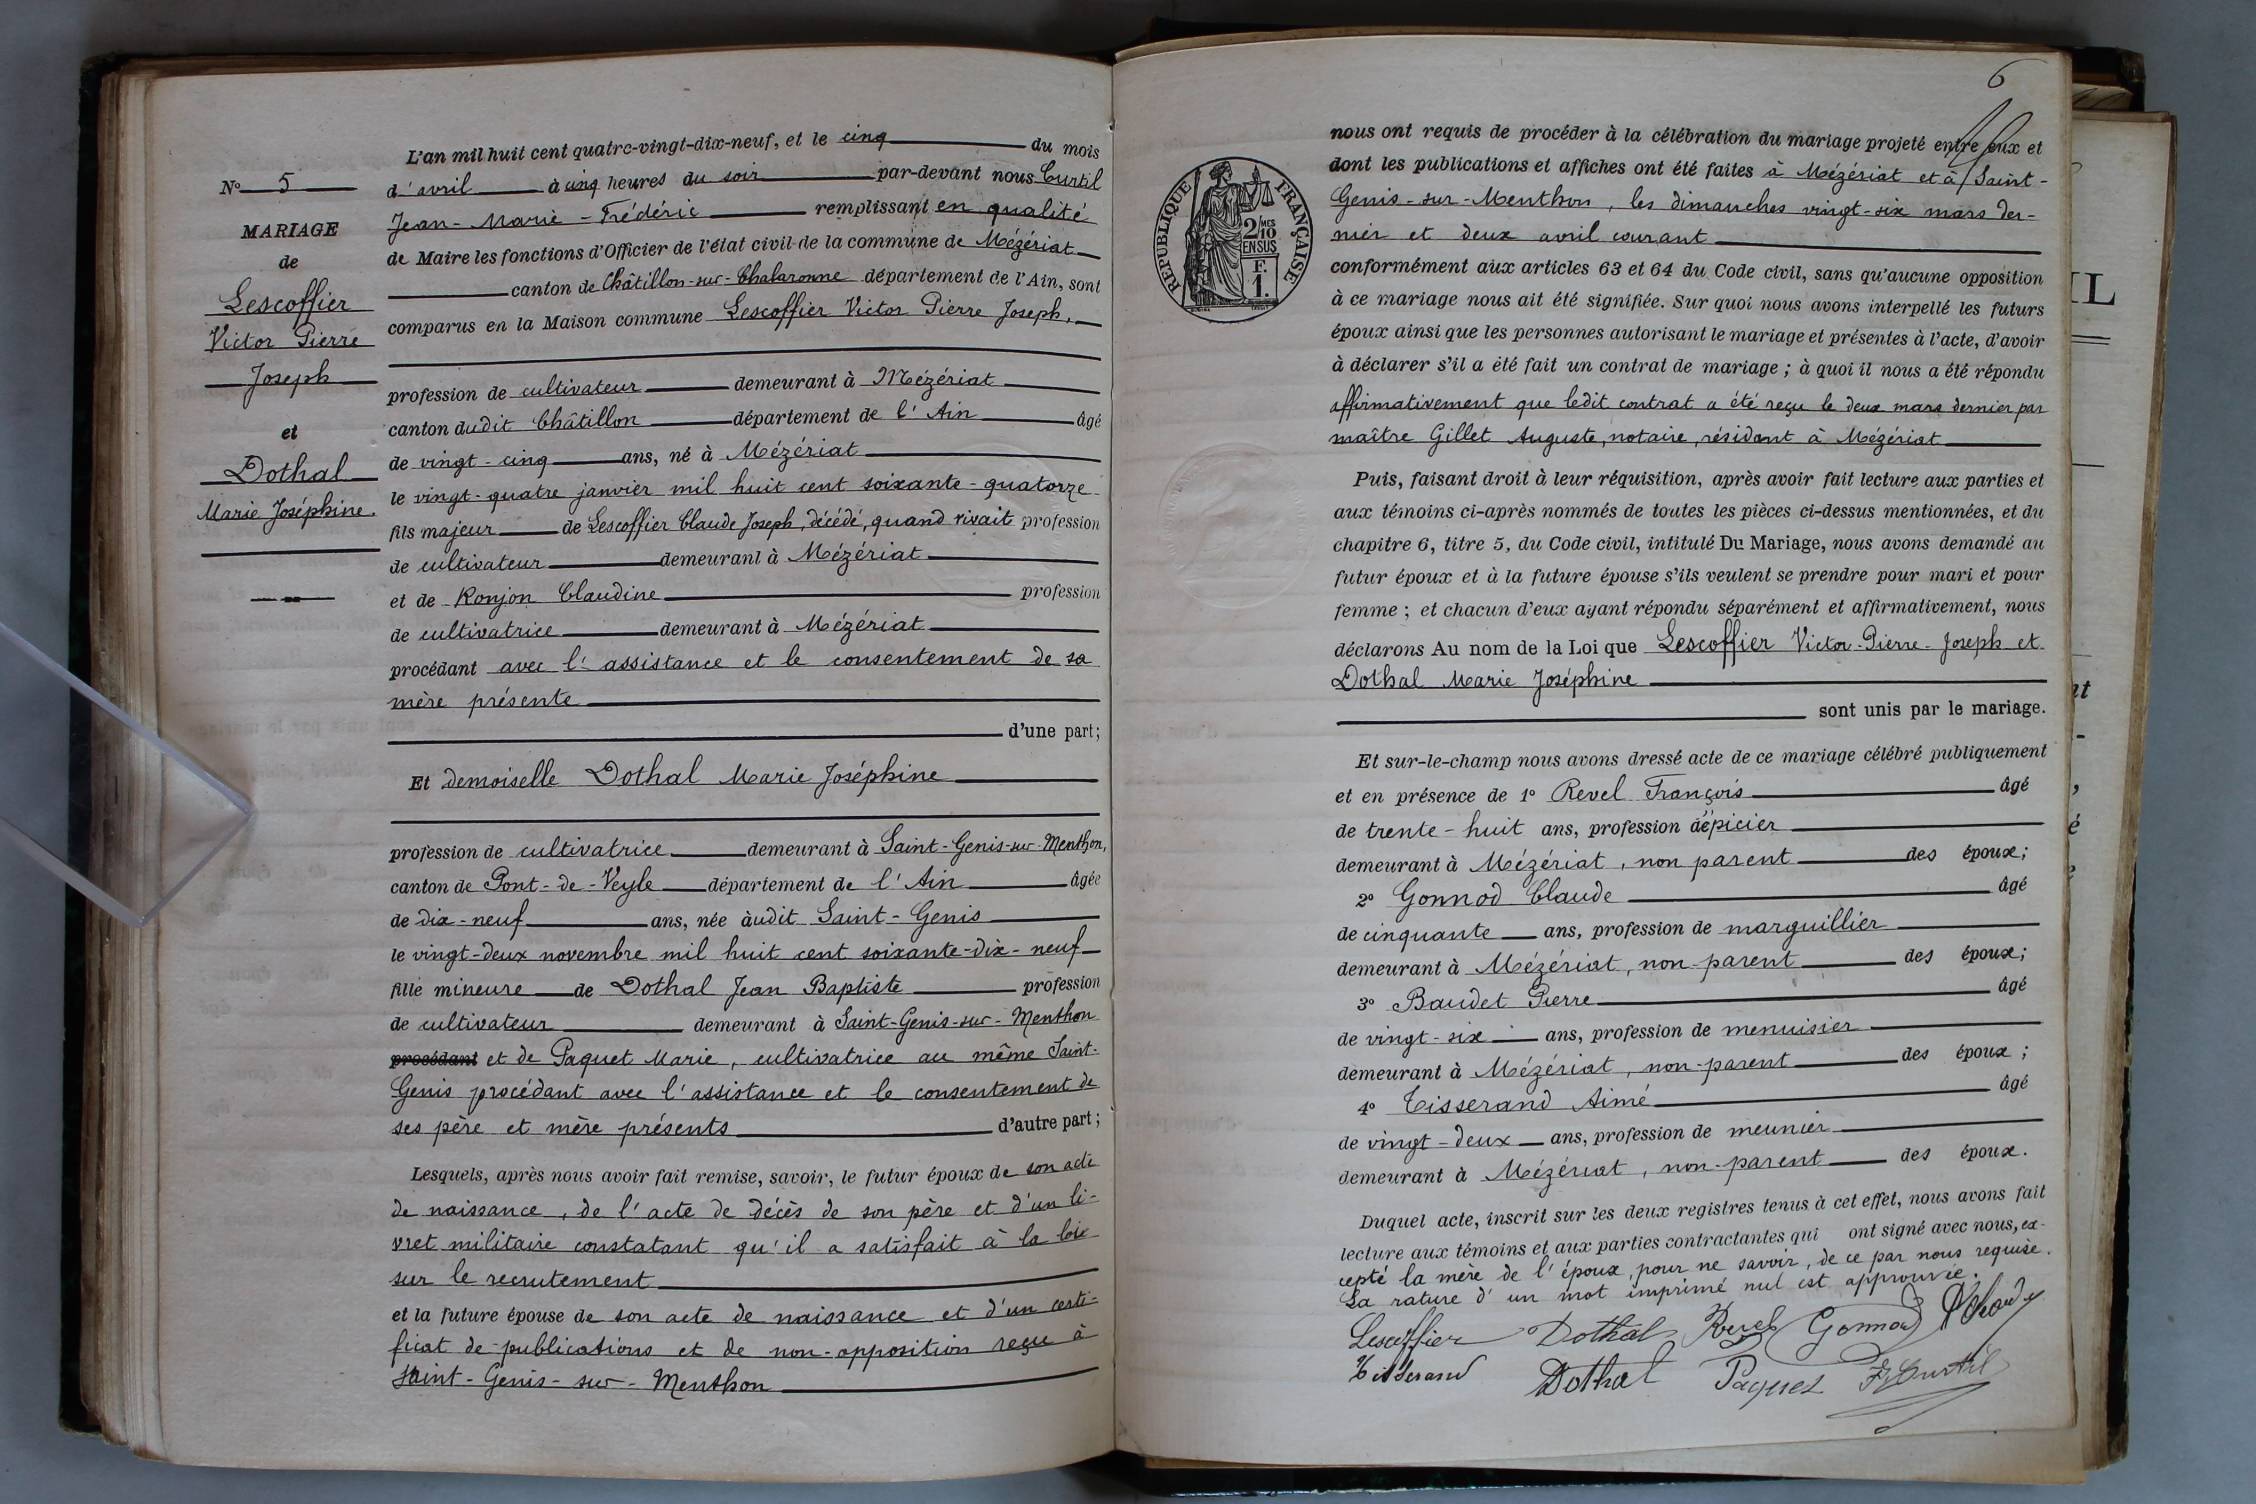 N° 5
MARIAGE
de
Lescoffier
Victor Pierre
Joseph
et
Dothal
Marie Joséphine.
L'an mil huit cent quatre-vingt-dix-neuf, et le cinq du mois
d'avril à cinq heures du soir par-devant nous Curtil
Jean-Marie-Frédéric remplissant en qualité
de Maire les fonctions d'Officier de l'état civil de la commune de Mézériat
canton de Châtillon-sur-Chalaronne département de l'Ain, sont
comparus en la Maison commune Lescoffier Victor Pierre Joseph,
profession de cultivateur demeurant à Mézériat
canton dudit Châtillon département de l'Ain âgé
de vingt-cinq ans, né à Mézériat
le vingt-quatre janvier mil huit cent soixante-quatorze
fils majeur de Lescoffier Claude Joseph, décédé, quand vivait profession
de cultivateur demeurant à Mézériat
et de Ronjon Claudine profession
de cultivatrice demeurant à Mézériat
procédant avec l'assistance et le consentement de sa
mère présente
d'une part;
Et demoiselle Dothal Marie Joséphine
profession de cultivatrice demeurant à Saint-Genis-sur-Menthon,
canton de Pont-de-Veyle département de l'Ain âgée
de dix-neuf ans, née àudit Saint-Genis
le vingt-deux novembre mil huit cent soixante-dix-neuf
fille mineure de Dothal Jean Baptiste profession
de cultivateur demeurant à Saint-Genis-sur-Menthon
procédant et de Paquet Marie, cultivatrice au même Saint-
Genis procédant avec l'assistance et le consentement de
ses père et mère présents d'autre part;
Lesquels, après nous avoir fait remise, savoir, le futur époux de son acte
de naissance, de l'acte de décès de son père et d'un li-
vret militaire constatant qu'il a satisfait à la loi
sur le recrutement
et la future épouse de son acte de naissance et d'un certi-
ficat de publications et de non-opposition reçu à
Saint-Genis-sur-Menthon
6
RÉPUBLIQUE FRANÇAISE
2/10 MES
EN SUS
F.
1.
nous ont requis de procéder à la célébration du mariage projeté entre eux et
dont les publications et affiches ont été faites à Mézériat et à Saint-
Genis-sur-Menthon, les dimanches vingt-six mars der-
nier et deux avril courant
conformément aux articles 63 et 64 du Code civil, sans qu'aucune opposition
à ce mariage nous ait été signifiée. Sur quoi nous avons interpellé les futurs
époux ainsi que les personnes autorisant le mariage et présentes à l'acte, d'avoir
à déclarer s'il a été fait un contrat de mariage ; à quoi il nous a été répondu
affirmativement que ledit contrat a été reçu le deux mars dernier par
maître Gillet Auguste, notaire, résidant à Mézériat
Puis, faisant droit à leur réquisition, après avoir fait lecture aux parties et
aux témoins ci-après nommés de toutes les pièces ci-dessus mentionnées, et du
chapitre 6, titre 5, du Code civil, intitulé Du Mariage, nous avons demandé au
futur époux et à la future épouse s'ils veulent se prendre pour mari et pour
femme ; et chacun d'eux ayant répondu séparément et affirmativement, nous
déclarons Au nom de la Loi que Lescoffier Victor-Pierre-Joseph et
Dothal Marie Joséphine
sont unis par le mariage.
Et sur-le-champ nous avons dressé acte de ce mariage célébré publiquement
et en présence de 1° Revel François âgé
de trente-huit ans, profession d'épicier
demeurant à Mézériat, non parent des époux;
2° Gonnod Claude âgé
de cinquante ans, profession de marguillier
demeurant à Mézériat, non-parent des époux;
3° Baudet Pierre âgé
de vingt-six ans, profession de menuisier
demeurant à Mézériat, non-parent des époux;
4° Tisserand Aimé âgé
de vingt-deux ans, profession de meunier
demeurant à Mézériat, non-parent des époux.
Duquel acte, inscrit sur les deux registres tenus à cet effet, nous avons fait
lecture aux témoins et aux parties contractantes qui ont signé avec nous, ex-
cepté la mère de l'époux, pour ne savoir, de ce par nous requise.
La rature d'un mot imprimé nul est approuvée.
Lescoffier Dothal Revel Gonnod
Tisserand Dothal Paquet F Curtil
IL